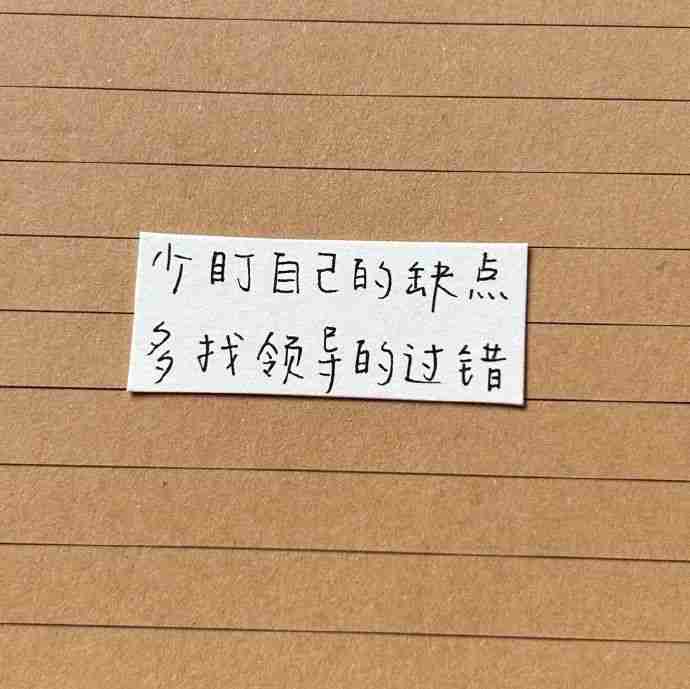 少盯自己的缺点
多找领导的过错